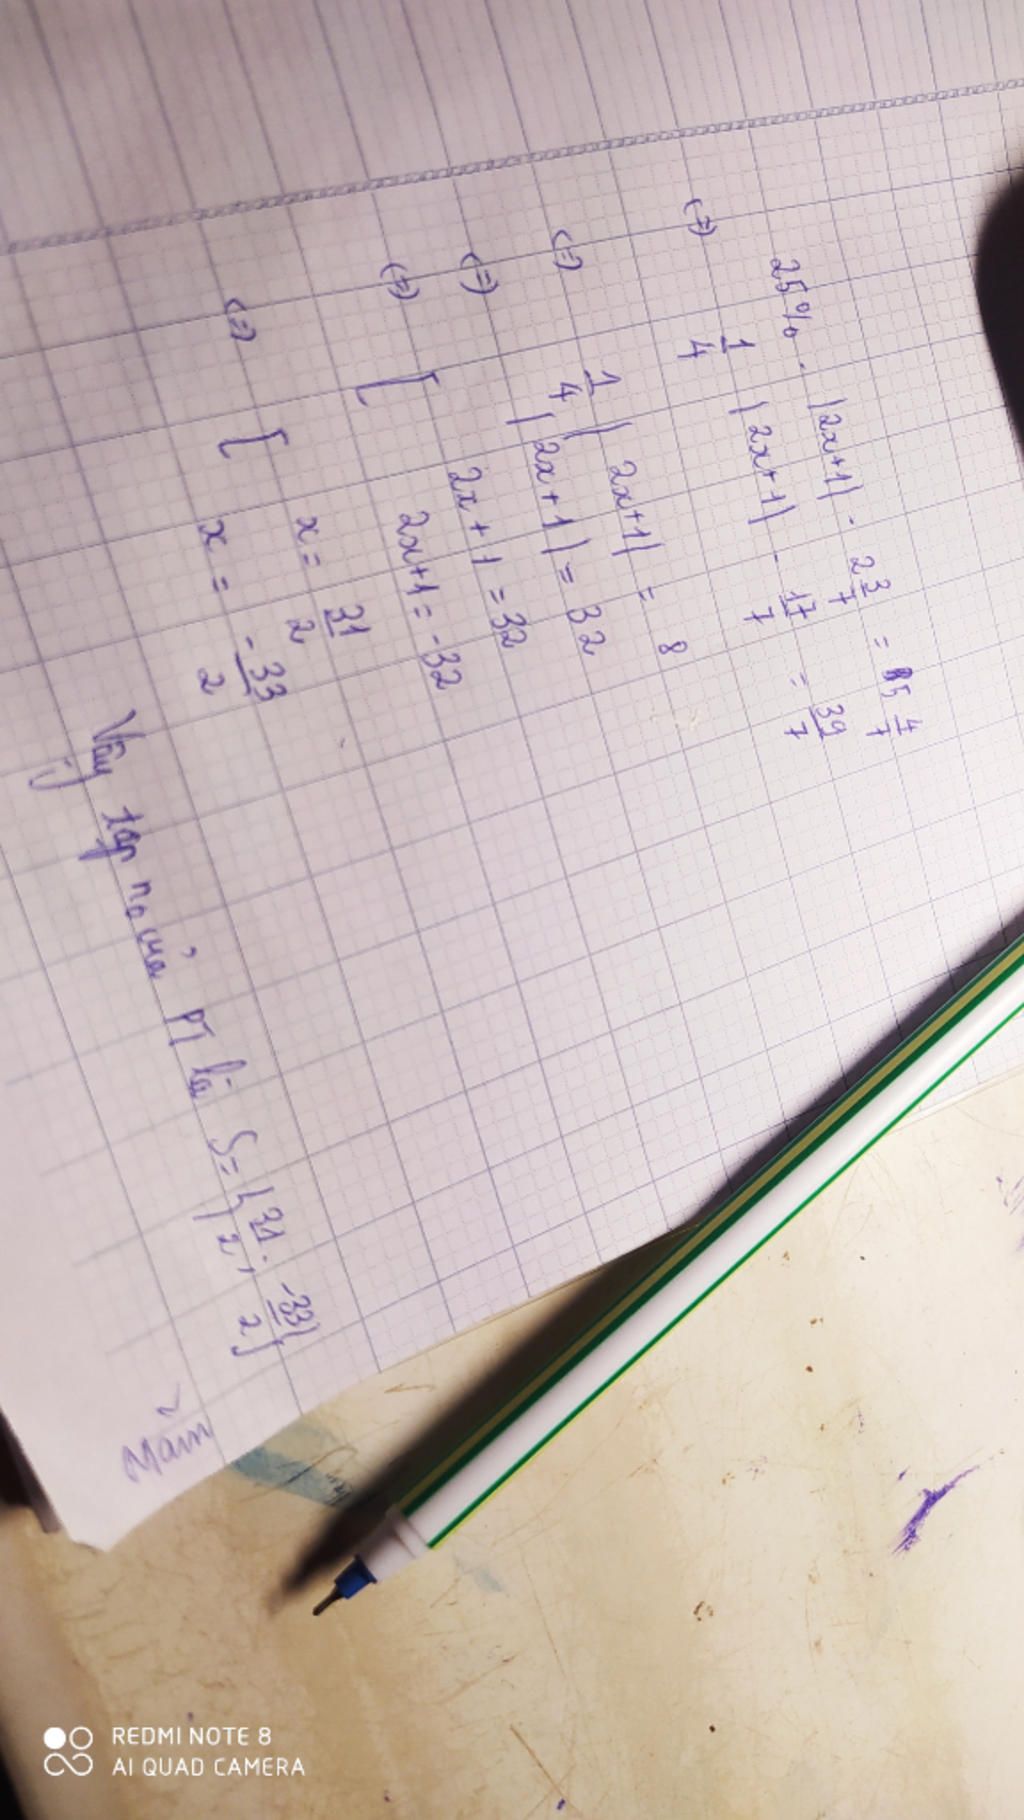 25% . |2x+1| - 2 3/7 = 5 4/7
(=) 1/4 |2x+1| - 17/7 = 39/7
(=) 1/4 |2x+1| = 8
(=) |2x+1| = 32
(=) [ 2x+1 = 32
2x+1 = -32
(=) [ x = 31/2
x = -33/2
Vậy tập no của PT là S = { 31/2 ; -33/2 }
Mẫn
REDMI NOTE 8
AI QUAD CAMERA